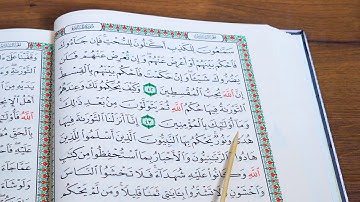 سَمَّٰعُونَ لِلۡكَذِبِ أَكَّٰلُونَ لِلسُّحۡتِۚ فَإِن جَآءُوكَ
فَٱحۡكُم بَيۡنَهُمۡ أَوۡ أَعۡرِضۡ عَنۡهُمۡۖ وَإِن تُعۡرِضۡ عَنۡهُمۡ فَلَن
يَضُرُّوكَ شَيۡـٔٗاۖ وَإِنۡ حَكَمۡتَ فَٱحۡكُم بَيۡنَهُم بِٱلۡقِسۡطِۚ
إِنَّ ٱللَّهَ يُحِبُّ ٱلۡمُقۡسِطِينَ ٤٢ وَكَيۡفَ يُحَكِّمُونَكَ وَعِندَهُمُ
ٱلتَّوۡرَىٰةُ فِيهَا حُكۡمُ ٱللَّهِ ثُمَّ يَتَوَلَّوۡنَ مِنۢ بَعۡدِ ذَٰلِكَۚ
وَمَآ أُوْلَٰٓئِكَ بِٱلۡمُؤۡمِنِينَ ٤٣ إِنَّآ أَنزَلۡنَا ٱلتَّوۡرَىٰةَ فِيهَا
هُدٗى وَنُورٞۚ يَحۡكُمُ بِهَا ٱلنَّبِيُّونَ ٱلَّذِينَ أَسۡلَمُواْ لِلَّذِينَ
هَادُواْ وَٱلرَّبَّٰنِيُّونَ وَٱلۡأَحۡبَارُ بِمَا ٱسۡتُحۡفِظُواْ مِن كِتَٰبِ
ٱللَّهِ وَكَانُواْ عَلَيۡهِ شُهَدَآءَۚ فَلَا تَخۡشَوُاْ ٱلنَّاسَ
وَٱخۡشَوۡنِ وَلَا تَشۡتَرُواْ بِـَٔايَٰتِي ثَمَنٗا قَلِيلٗاۚ وَمَن لَّمۡ يَحۡكُم